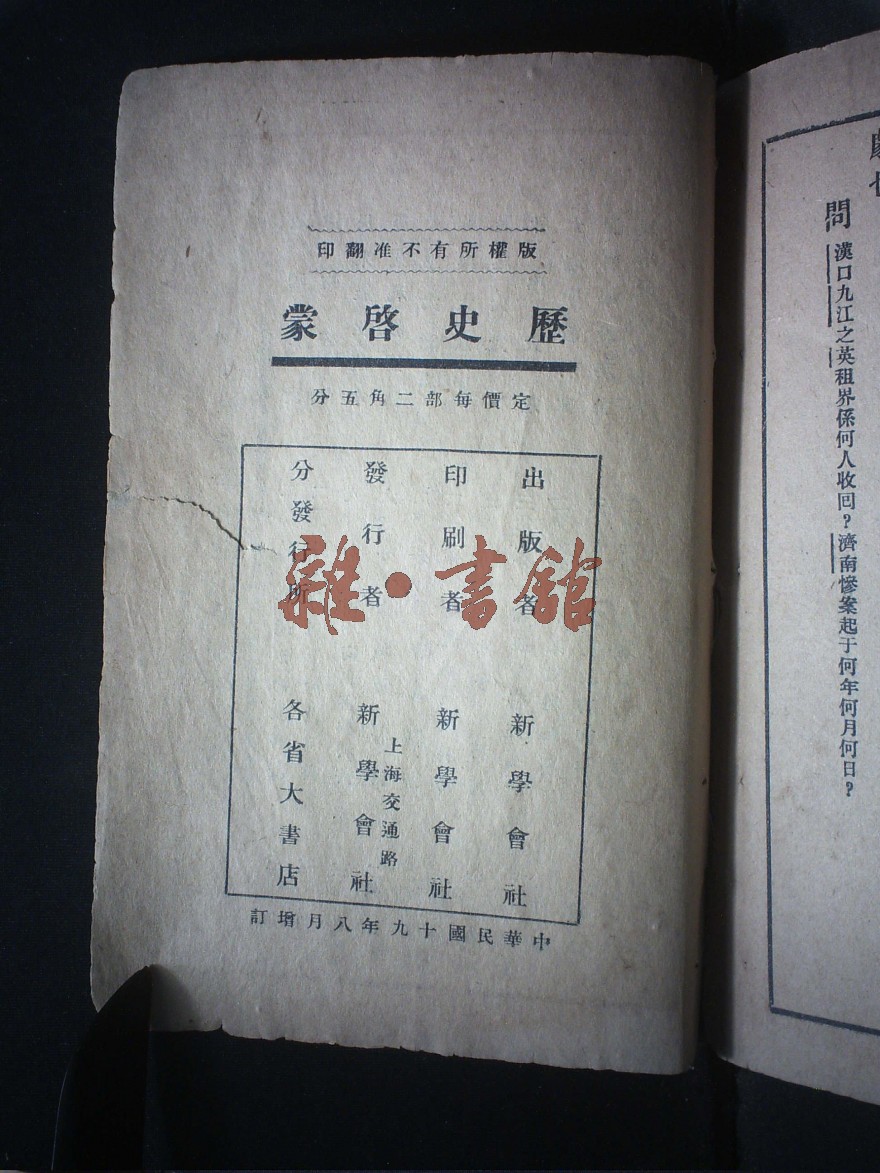 問
漢口九江之英租界係何人收回？濟南慘案起于何年何月何日？
版權所有不准翻印
歷史啓蒙
定價每部二角五分
出版者 新學會社
印刷者 新學會社
發行者 上海交通路 新學會社
分發行所 各省大書店
中華民國十九年八月增訂
雜·書館